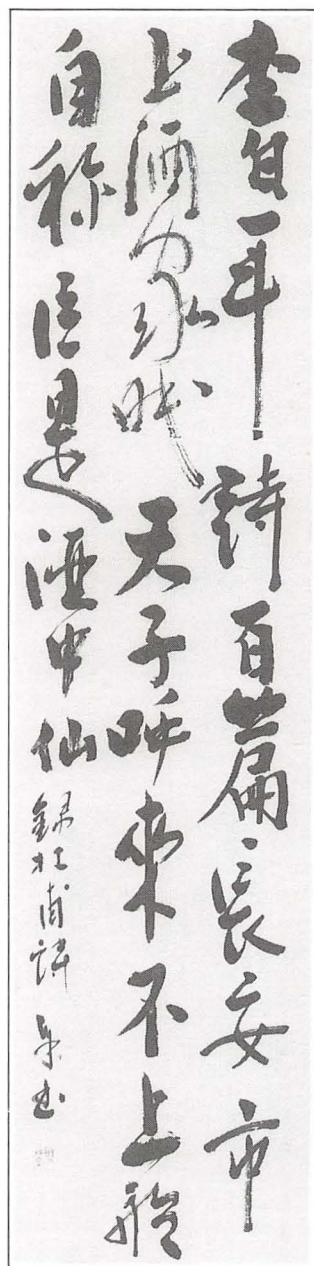 李白一斗詩百篇長安市
上酒家眠天子呼來不上船
自称臣是酒中仙 錄杜甫詩